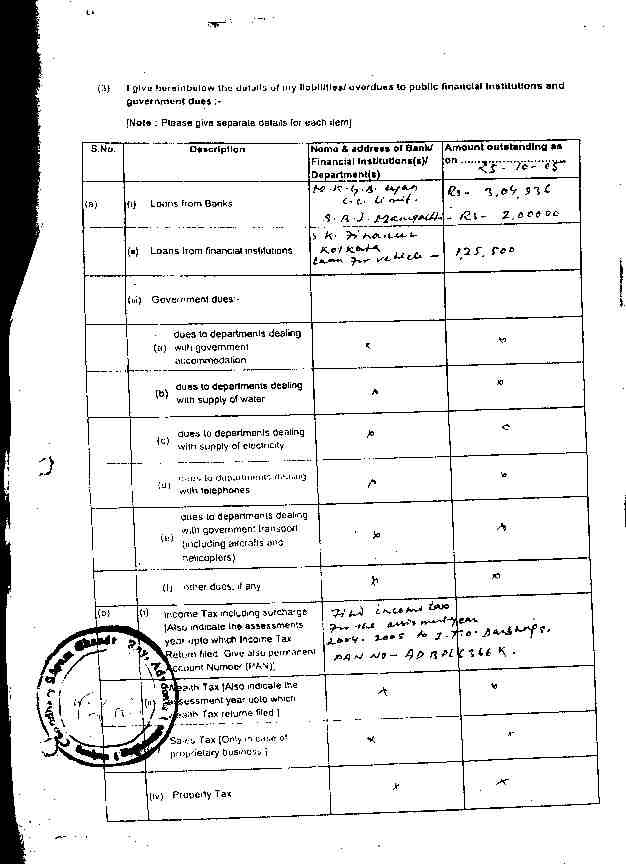 (3) I give hereinbelow the details of my liabilities/ overdues to public financial institutions and
government dues :-
[Note : Please give separate details for each item]
S.No. Description Name & address of Bank/ Amount outstanding as
Financial Institutions(s)/ on ..............................
Department(s) 25-10-05
(a) (i) Loans from Banks C.C. Limit. Rs- 3,04,936
- Rs- 2,00000
S K. Finance
(ii) Loans from financial institutions Kolkata 1,25,500
Loan for vehicle -
(iii) Government dues:-
dues to departments dealing
(a) with government
accommodation
(b) dues to departments dealing
with supply of water
(c) dues to departments dealing
with supply of electricity
(d) dues to departments dealing
with telephones
dues to departments dealing
(e) with government transport
(including aircrafts and
helicopters)
(f) other dues, if any
(b) (i) Income Tax including surcharge
[Also indicate the assessments
year upto which Income Tax
Return filed. Give also permanent
Account Number (PAN)]
Filed income tax
for the assisment year
2004-2005 to I.T.O.
PAN NO-
(ii) Wealth Tax [Also indicate the
assessment year upto which
Wealth Tax returns filed ]
Sales Tax [Only in case of
proprietary business ]
(iv) Property Tax